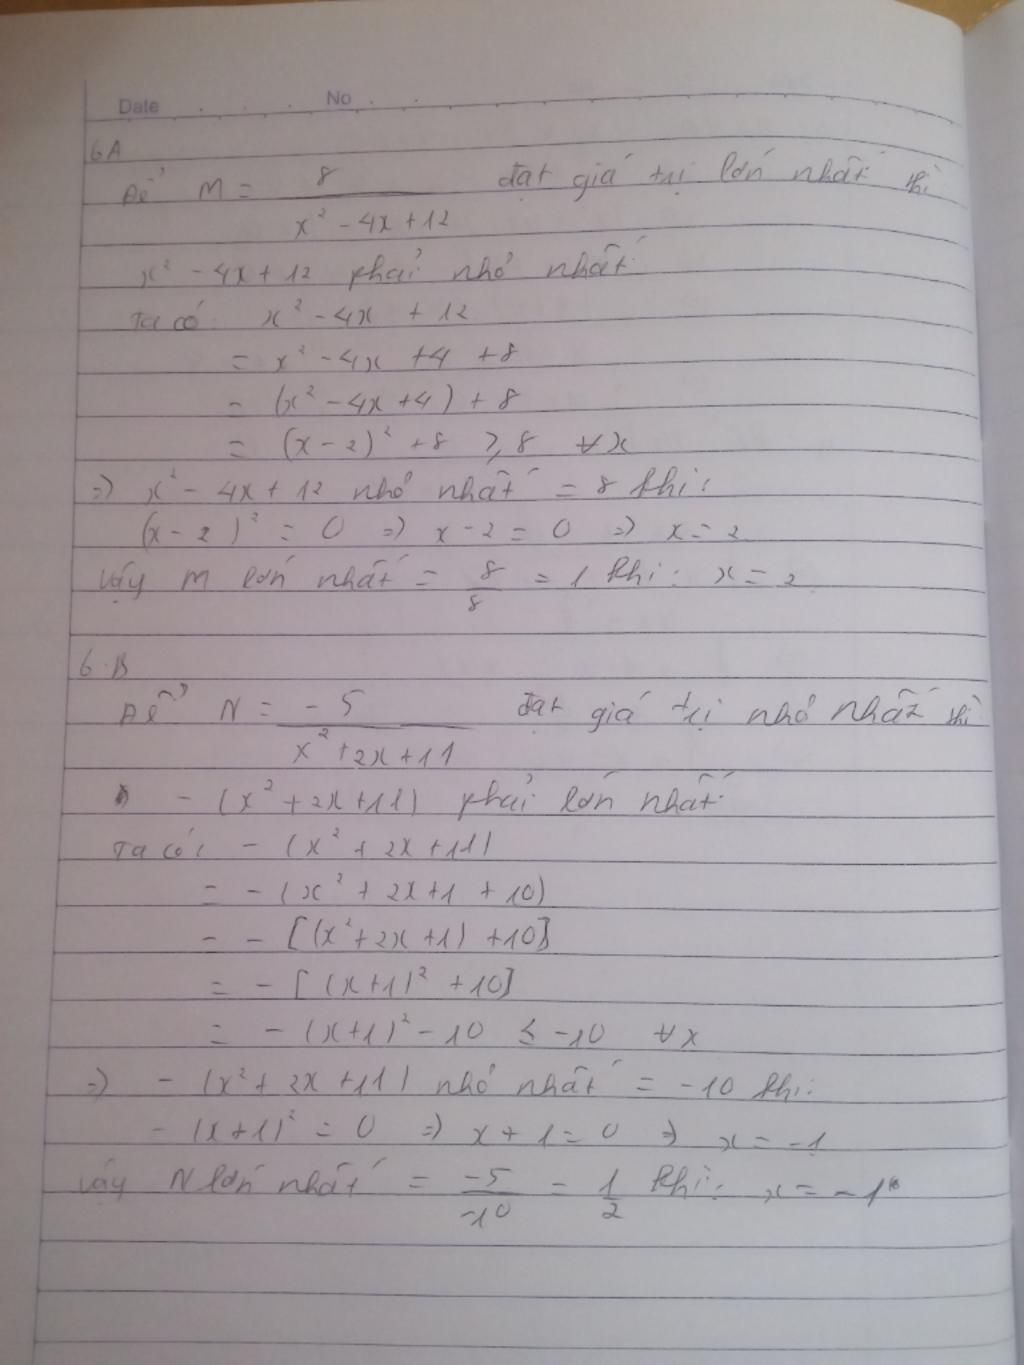 Date No
6A
Để M = 8 / (x² - 4x + 12) đạt giá trị lớn nhất thì
x² - 4x + 12 phải nhỏ nhất
Ta có: x² - 4x + 12
= x² - 4x + 4 + 8
= (x² - 4x + 4) + 8
= (x - 2)² + 8 ≥ 8 ∀x
=> x² - 4x + 12 nhỏ nhất = 8 khi:
(x - 2)² = 0 => x - 2 = 0 => x = 2
Vậy M lớn nhất = 8/8 = 1 khi: x = 2
6.B
Để N = -5 / (x² + 2x + 11) đạt giá trị nhỏ nhất thì
- (x² + 2x + 11) phải lớn nhất
Ta có: - (x² + 2x + 11)
= - (x² + 2x + 1 + 10)
= - [(x² + 2x + 1) + 10]
= - [(x + 1)² + 10]
= - (x + 1)² - 10 ≤ -10 ∀x
=> - (x² + 2x + 11) nhỏ nhất = -10 khi:
- (x + 1)² = 0 => x + 1 = 0 => x = -1
Vậy N lớn nhất = -5/-10 = 1/2 khi: x = -1